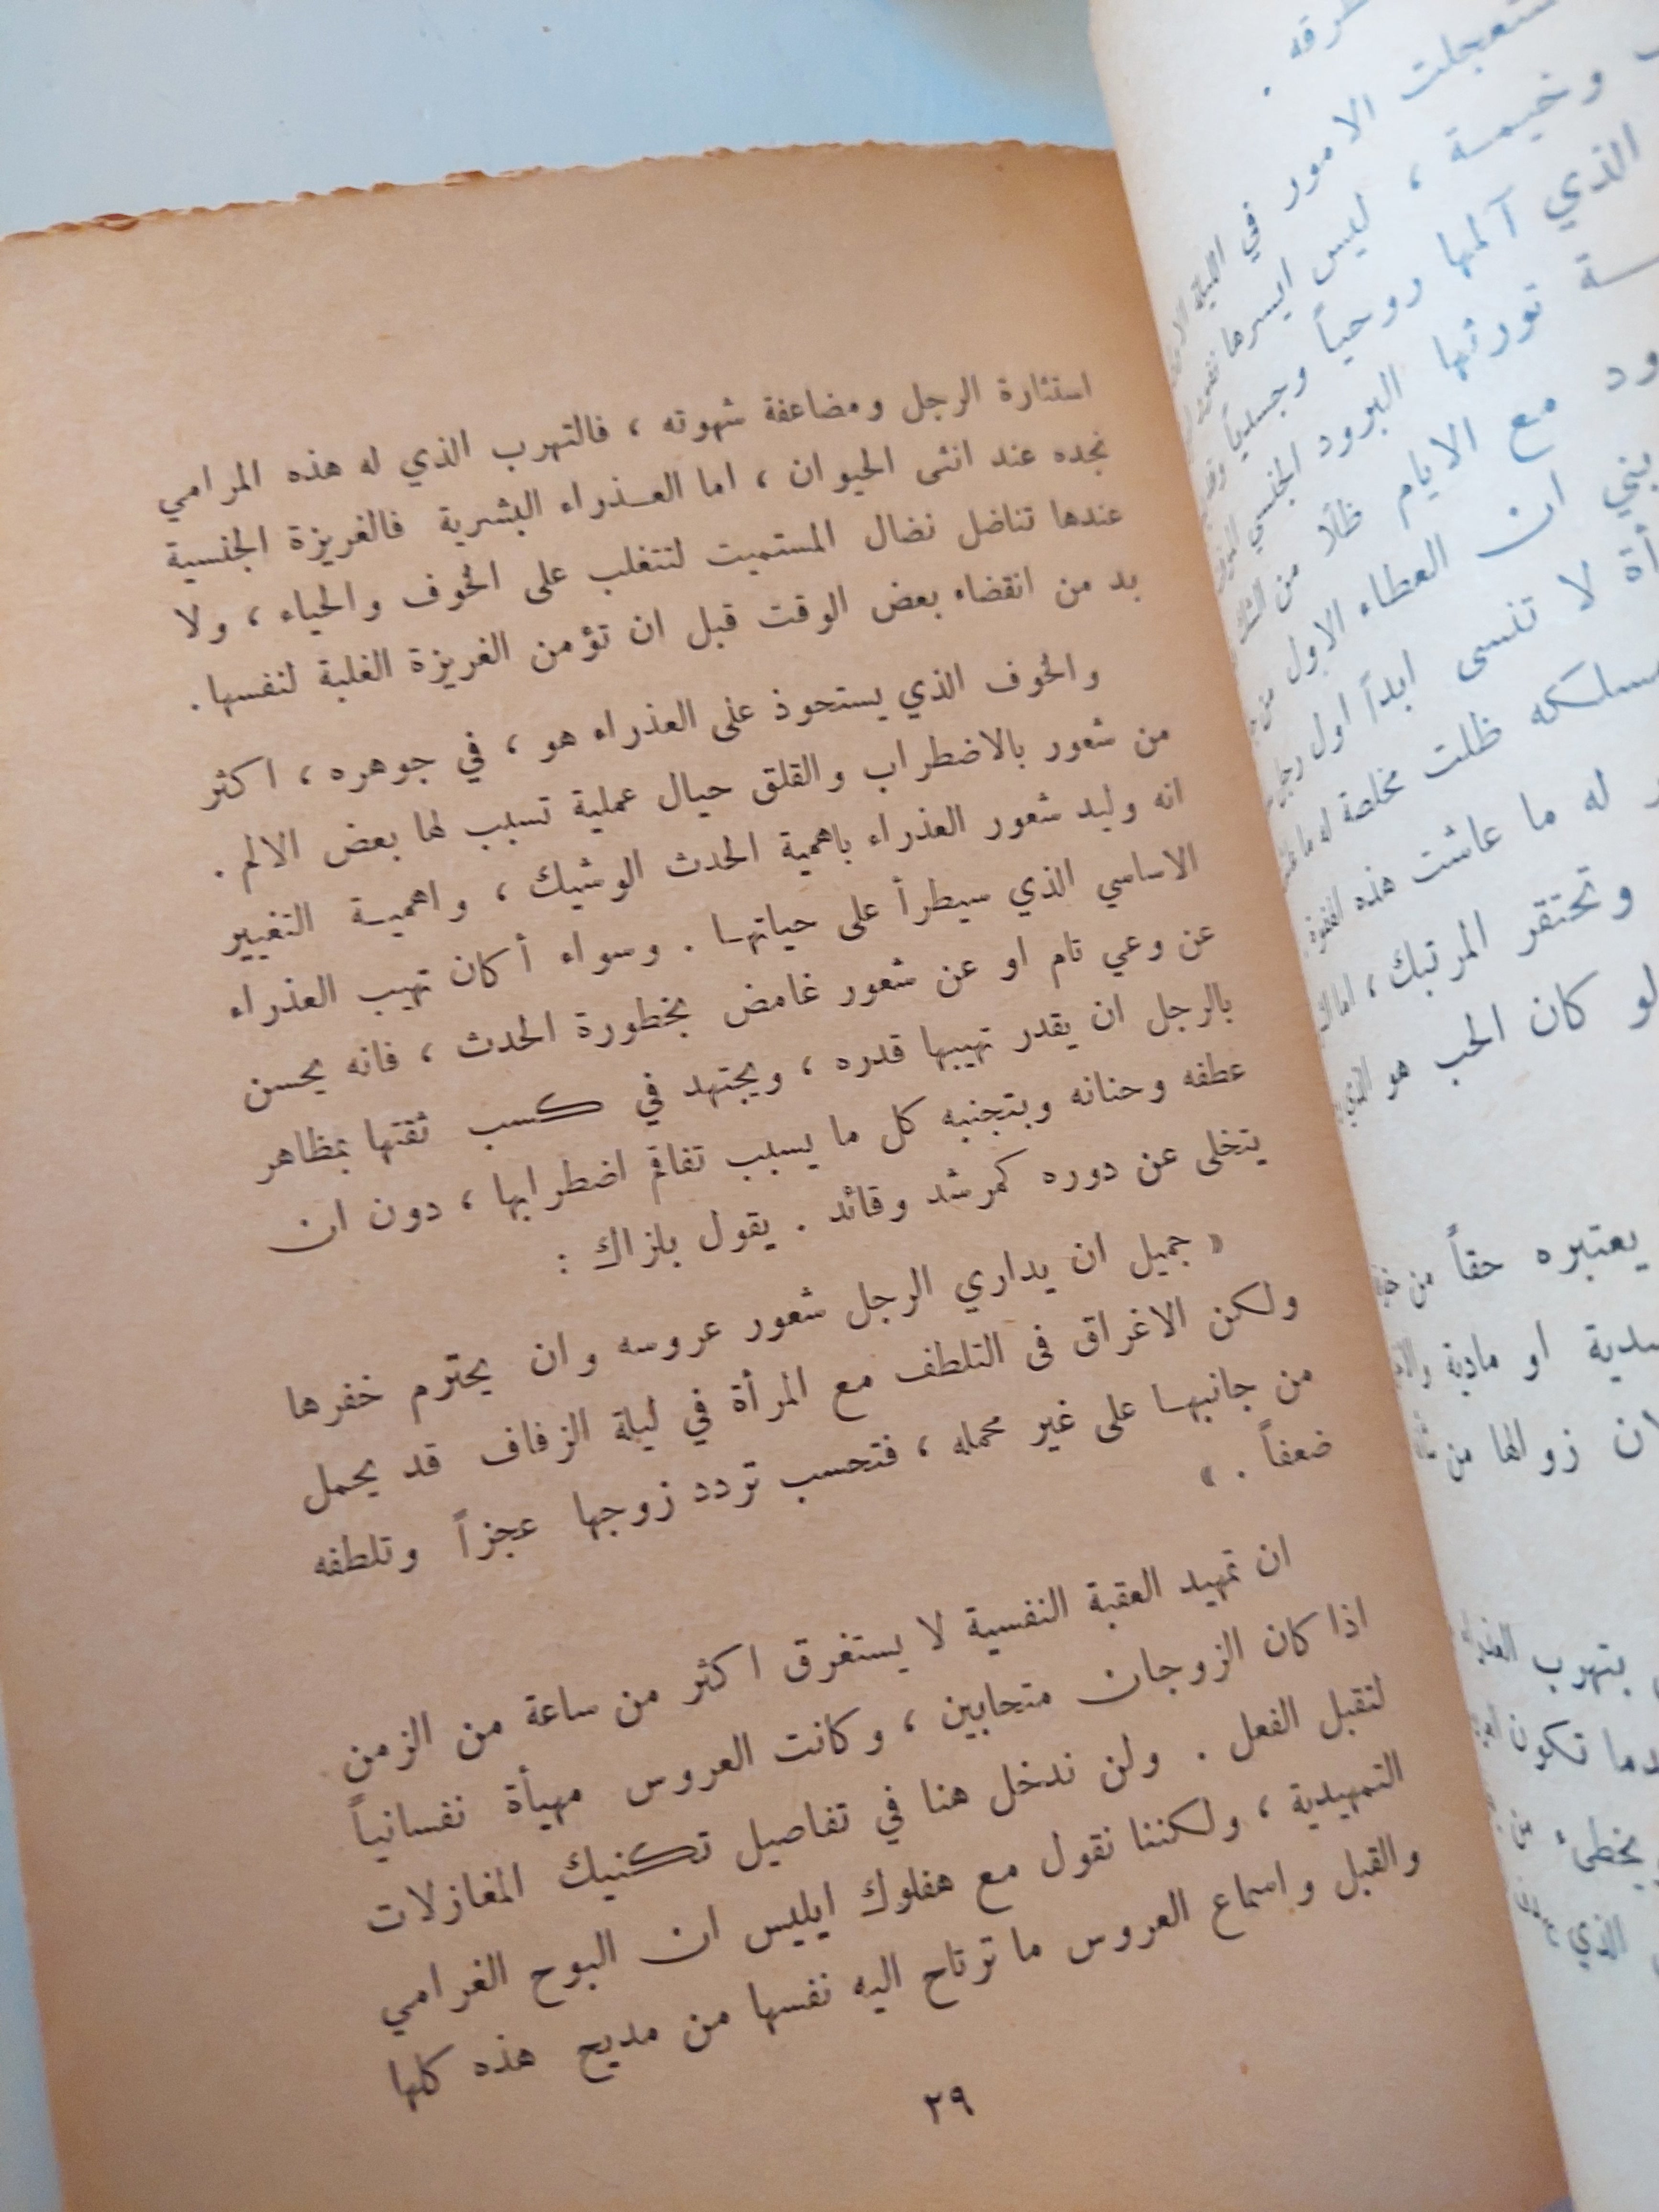 استثارة الرجل ومضاعفة شهوته ، فالتهرب الذي له هذه المرامي
نجده عند انثى الحيوان ، اما العـذراء البشرية فالغريزة الجنسية
عندها تناضل نضال المستميت لتتغلب على الخوف والحياء ، ولا
بد من انقضاء بعض الوقت قبل ان تؤمن الغريزة الغلبة لنفسها .
والخوف الذي يستحوذ على العذراء هو ، في جوهره ، اكثر
من شعور بالاضطراب والقلق حيال عملية تسبب لها بعض الالم .
انه وليد شعور العذراء باهمية الحدث الوشيك ، واهميـة التغيير
الاساسي الذي سيطرأ على حياتهـا . وسواء أكان تهيب العذراء
عن وعي تام او عن شعور غامض بخطورة الحدث ، فانه يحسن
بالرجل ان يقدر تهيبها قدره ، ويجتهد في كسب ثقتها بمظاهر
عطفه وحنانه وبتجنبه كل ما يسبب تفاقم اضطرابها ، دون ان
يتخلى عن دوره كمرشد وقائد . يقول بلزاك :
« جميل ان يداري الرجل شعور عروسه وان يحترم خفرها
ولكن الاغراق فى التلطف مع المرأة في ليلة الزفاف قد يحمل
من جانبهـا على غير محمله ، فتحسب تردد زوجها عجزاً وتلطفه
ضعفاً . »
ان تمهيد العقبة النفسية لا يستغرق اكثر من ساعة من الزمن
اذا كان الزوجان متحابين ، وكانت العروس مهيأة نفسانياً
لتقبل الفعل . ولن ندخل هنا في تفاصيل تكنيك المغازلات
التمهيدية ، ولكننا نقول مع هفلوك ايليس ان البوح الغرامي
والقبل واسماع العروس ما ترتاح اليه نفسها من مديح هذه كلها
٢٩
الامور في الليلة
وخيمة ، ليس ايسرها
الذي آلمها روحياً وجسدياً
تورثها البرود الجنسي
مع الايام ظلًا من الشك
ان العطاء الاول من
لا تنسى ابداً اول رجل
ظلت مخلصة له ما
له ما عاشت هذه
وتحتقر المرتبك ، اما
لو كان الحب هو الذي
يعتبره حقاً من
او مادية
زوالها من
بتهرب
تكون
يخطئ من
الذي